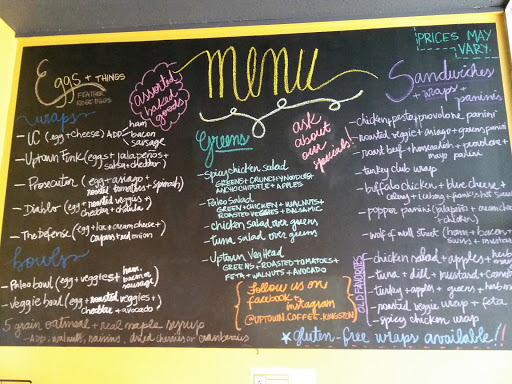 PRICES MAY
VARY.
Eggs + THINGS
FEATHER
RIDGE EGGS
assorted
baked
goods
menu
wraps
- UC (egg + cheese) ADD - ham
bacon
sausage
- Uptown Funk (eggs + jalapeños +
salsa + cheddar)
- Prosecutor (egg + asiago +
roasted tomatoes + spinach)
- Diablo (egg + roasted veggies +
cheddar + cholula)
- The Defense (egg + lox + cream cheese +
capers + red onion)
bowls
- Paleo bowl (egg + veggies + ham,
bacon or
sausage)
- Veggie bowl (egg + roasted veggies +
cheddar + avocado)
5 grain oatmeal + real maple syrup
ADD: walnuts, raisins, dried cherries or cranberries
Greens
- spicy chicken salad
GREENS + CRUNCHY NOODLES +
ANCHO CHIPOTLE + APPLES
- Paleo Salad
GREENS + CHICKEN + WALNUTS +
ROASTED VEGGIES + BALSAMIC
- chicken salad over greens
- tuna salad over greens
- Uptown Veg Head
GREENS + ROASTED TOMATOES +
FETA + WALNUTS + AVOCADO
ask
about
our
specials!
follow us on
facebook +
instagram
@UPTOWN.COFFEE.KINGSTON
Sandwiches
+ wraps +
paninis
- chicken + pesto + provolone panini
- roasted veggie + asiago + greens panini
- roast beef + horseradish + provolone +
mayo panini
- turkey club wrap
- buffalo chicken + blue cheese +
celery + iceberg + frank's hot sauce
- popper panini (jalapeños + cream cheese +
chicken)
- wolf of wall street (ham + bacon +
swiss + mustard
OLD FAVORITES
- chicken salad + apples + herbs
- tuna + dill + mustard +
- turkey + apples + greens + herb
- roasted veggie wrap + feta
- spicy chicken wrap
* gluten-free wraps available!!